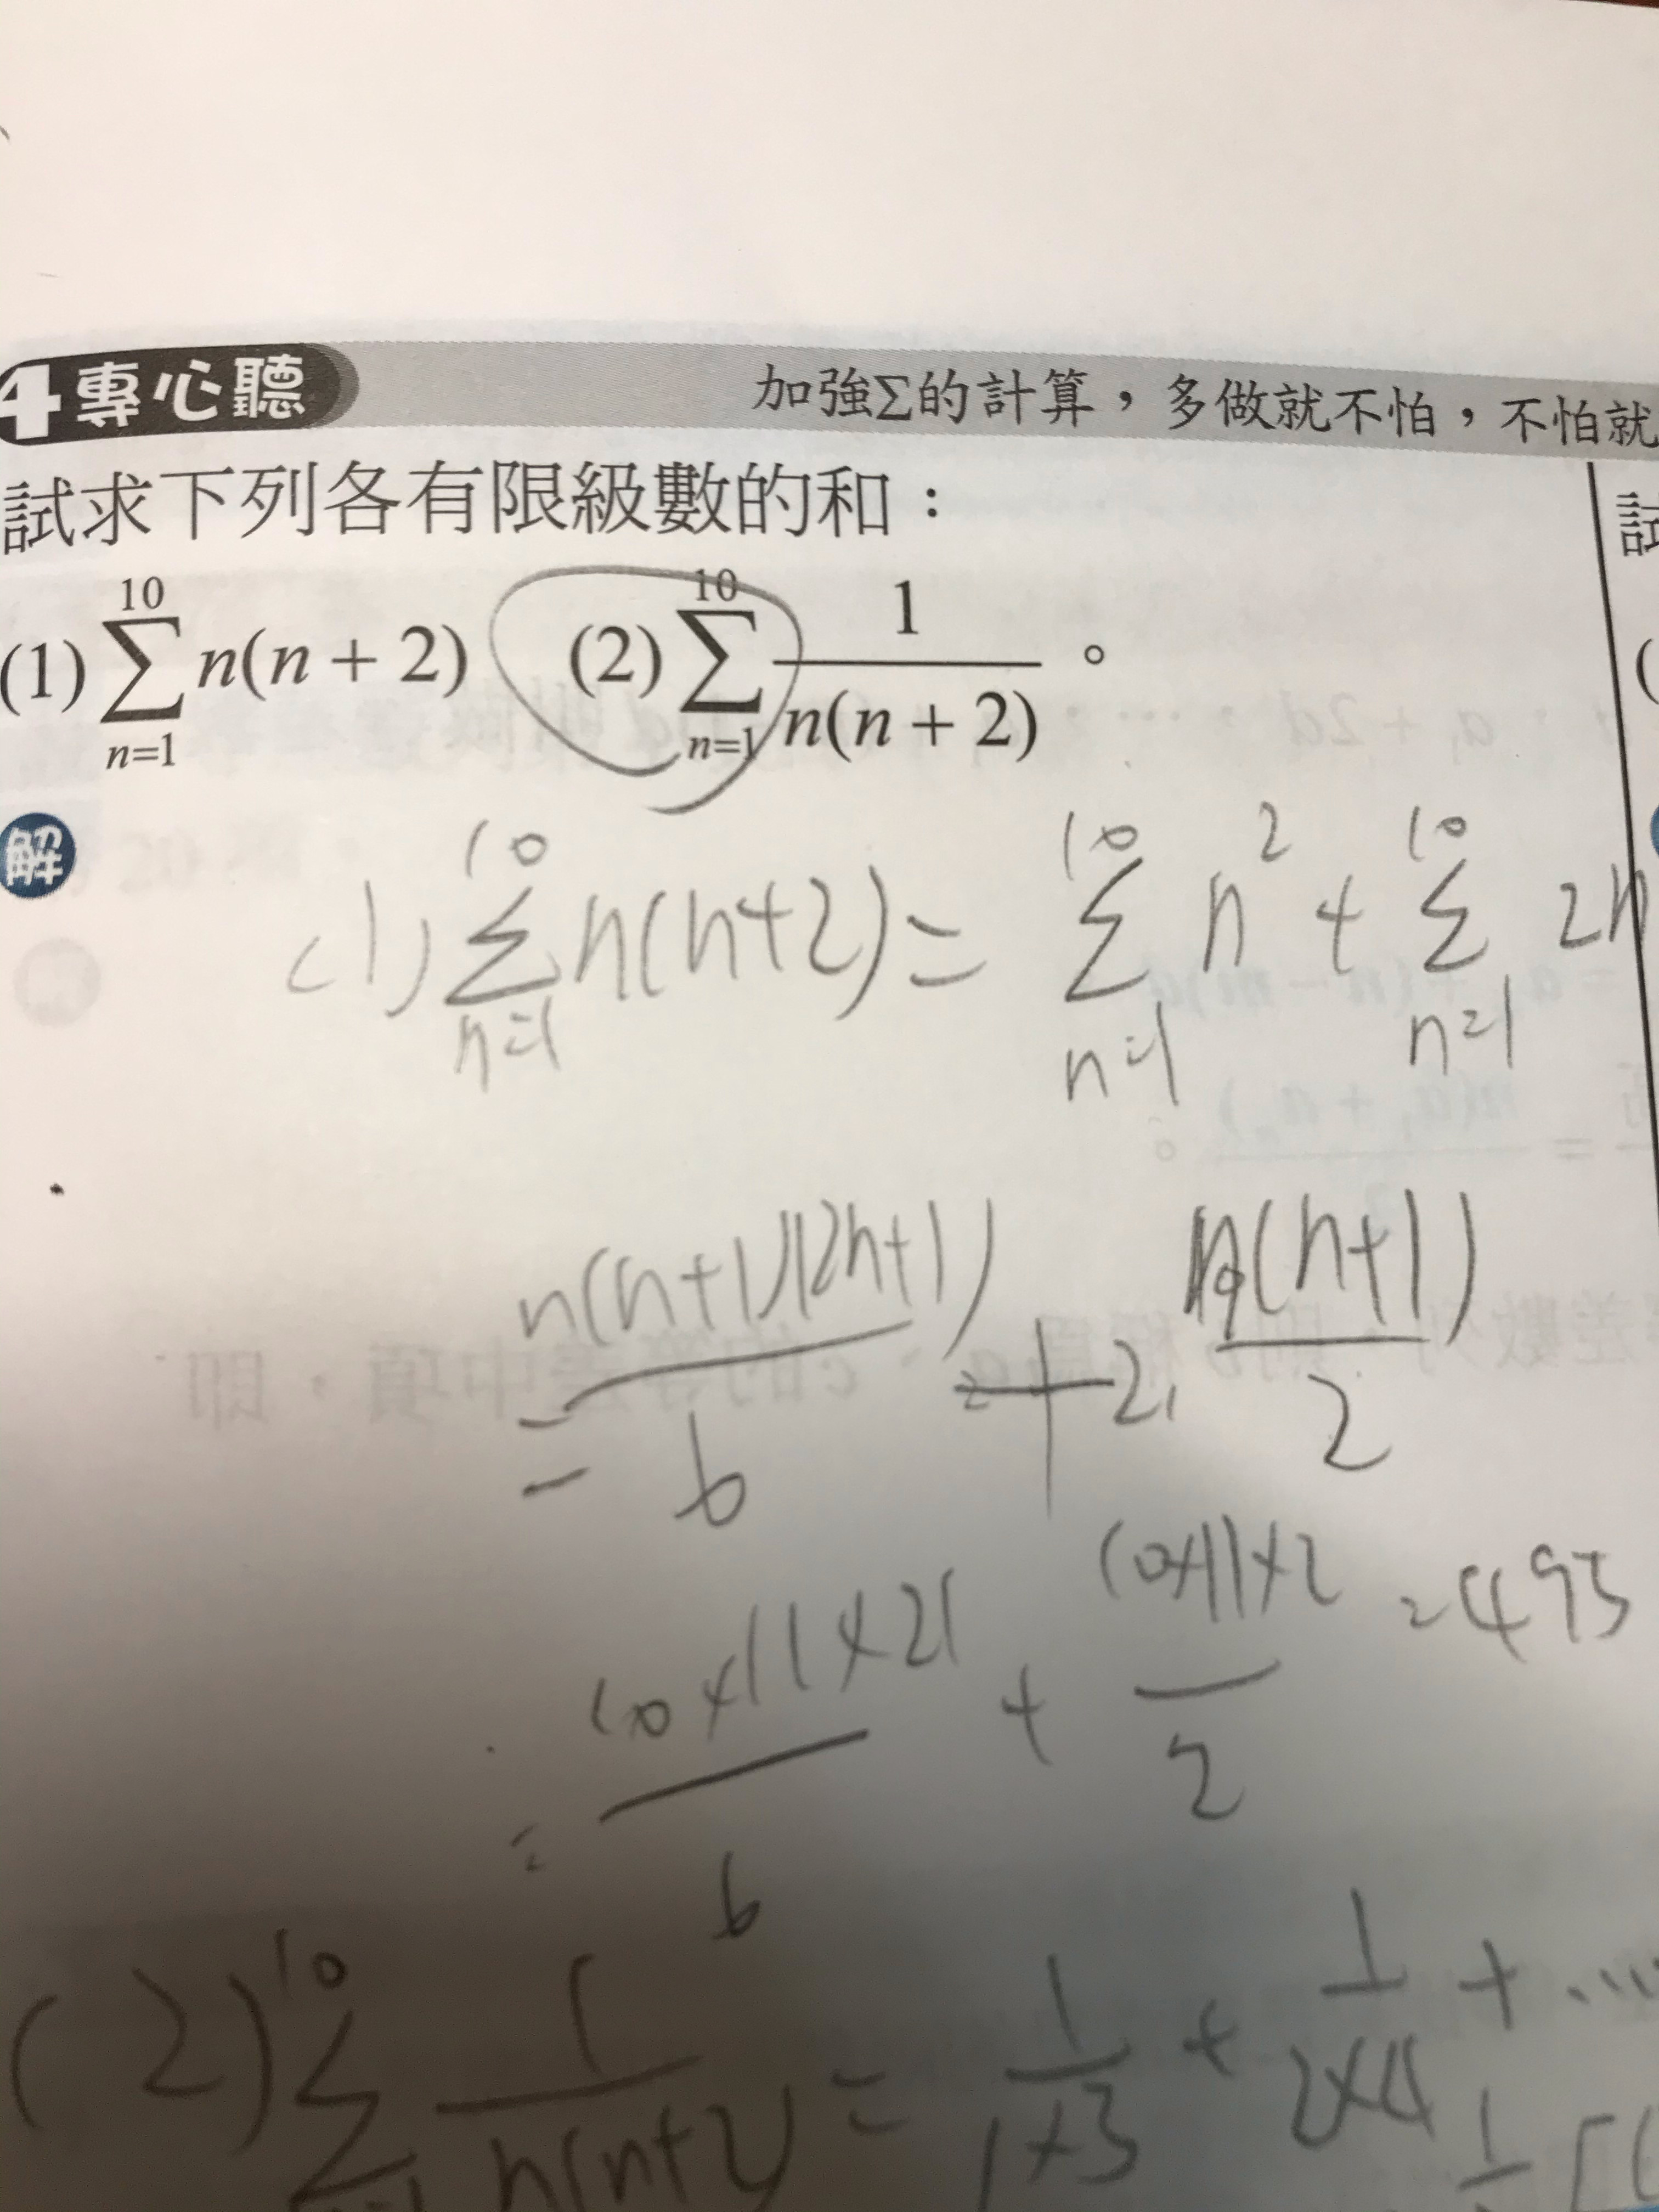 4 專心聽
加強Σ的計算，多做就不怕，不怕就
試求下列各有限級數的和：
(1) \sum_{n=1}^{10} n(n + 2) (2) \sum_{n=1}^{10} \frac{1}{n(n + 2)}。
解
(1) \sum_{n=1}^{10} n(n+2) = \sum_{n=1}^{10} n^2 + \sum_{n=1}^{10} 2n
= \frac{n(n+1)(2n+1)}{6} + 2 \cdot \frac{n(n+1)}{2}
= \frac{10×11×21}{6} + \frac{10×11×2}{2} = 495
(2) \sum^{10} \frac{1}{n(n+2)} = \frac{1}{1×3} + \frac{1}{2×4} + ....
試
(